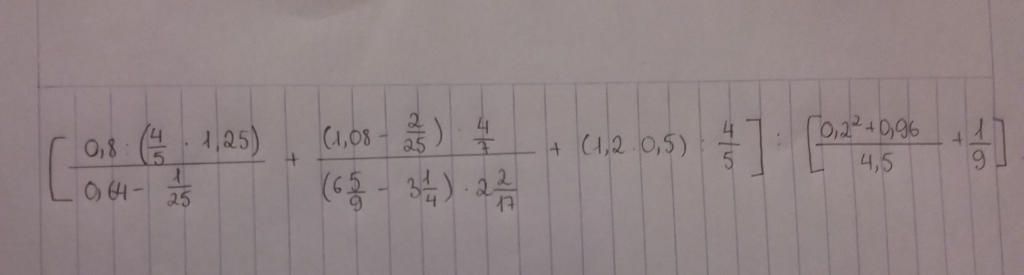 [ (0,8 : (4/5 · 1,25)) / (0,64 - 1/25) + ((1,08 - 2/25) : 4/7) / ((6 5/9 - 3 1/4) · 2 2/17) + (1,2 · 0,5) : 4/5 ] : [ (0,2² + 0,96) / 4,5 + 1/9 ]